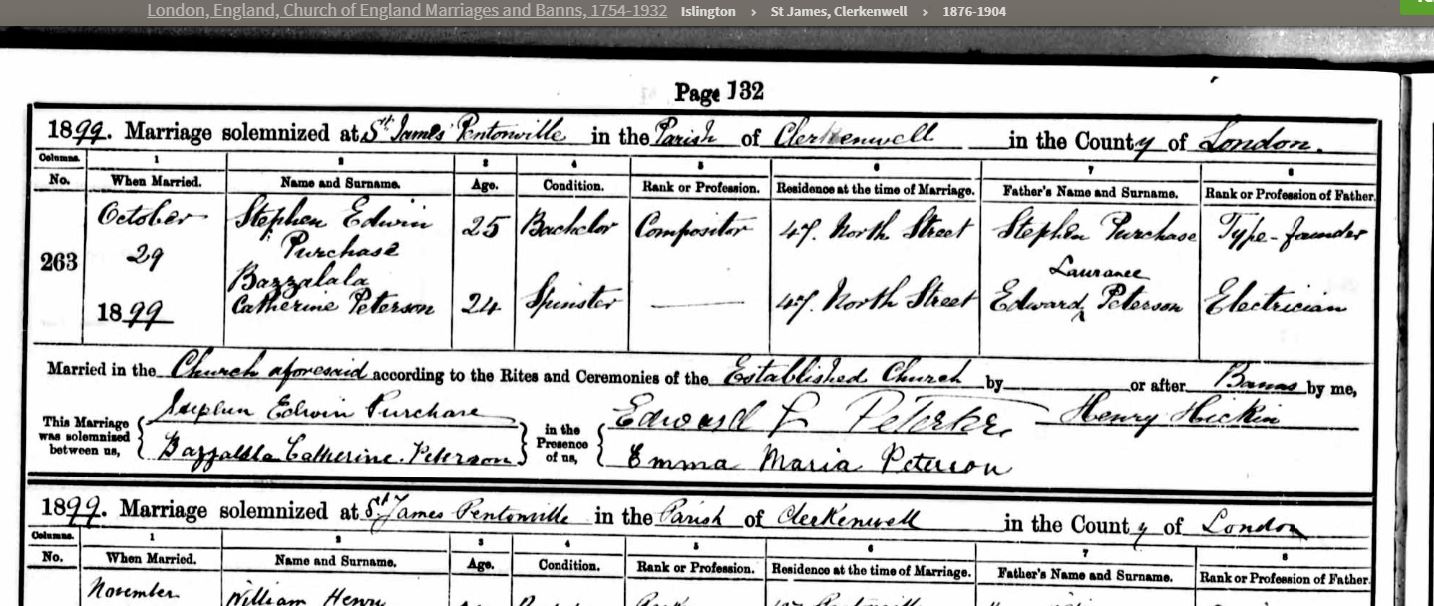 London, England, Church of England Marriages and Banns, 1754-1932 Islington > St James, Clerkenwell > 1876-1904
Page 132
1899. Marriage solemnized at St James' Pentonville in the Parish of Clerkenwell in the County of London.
Columns. 1 2 3 4 5 6 7 8
No. When Married. Name and Surname. Age. Condition. Rank or Profession. Residence at the time of Marriage. Father's Name and Surname. Rank or Profession of Father.
October Stephen Edwin 25 Bachelor Compositor 47. North Street Stephen Purchase Type-founder
263 29 Purchase
Bazzalala Laurance
1899 Catherine Peterson 24 Spinster 47. North Street Edward Peterson Electrician
Married in the Church aforesaid according to the Rites and Ceremonies of the Established Church by or after Banns by me,
This Marriage was solemnized between us, Stephen Edwin Purchase in the Presence of us, Edward L Henry Hickin
Catherine Peterson Emma Maria Peterson
1899. Marriage solemnized at St James Pentonville in the Parish of Clerkenwell in the County of London
Columns. 1 2 3 4 5 6 7 8
No. When Married. Name and Surname. Age. Condition. Rank or Profession. Residence at the time of Marriage. Father's Name and Surname. Rank or Profession of Father.
November William Henry